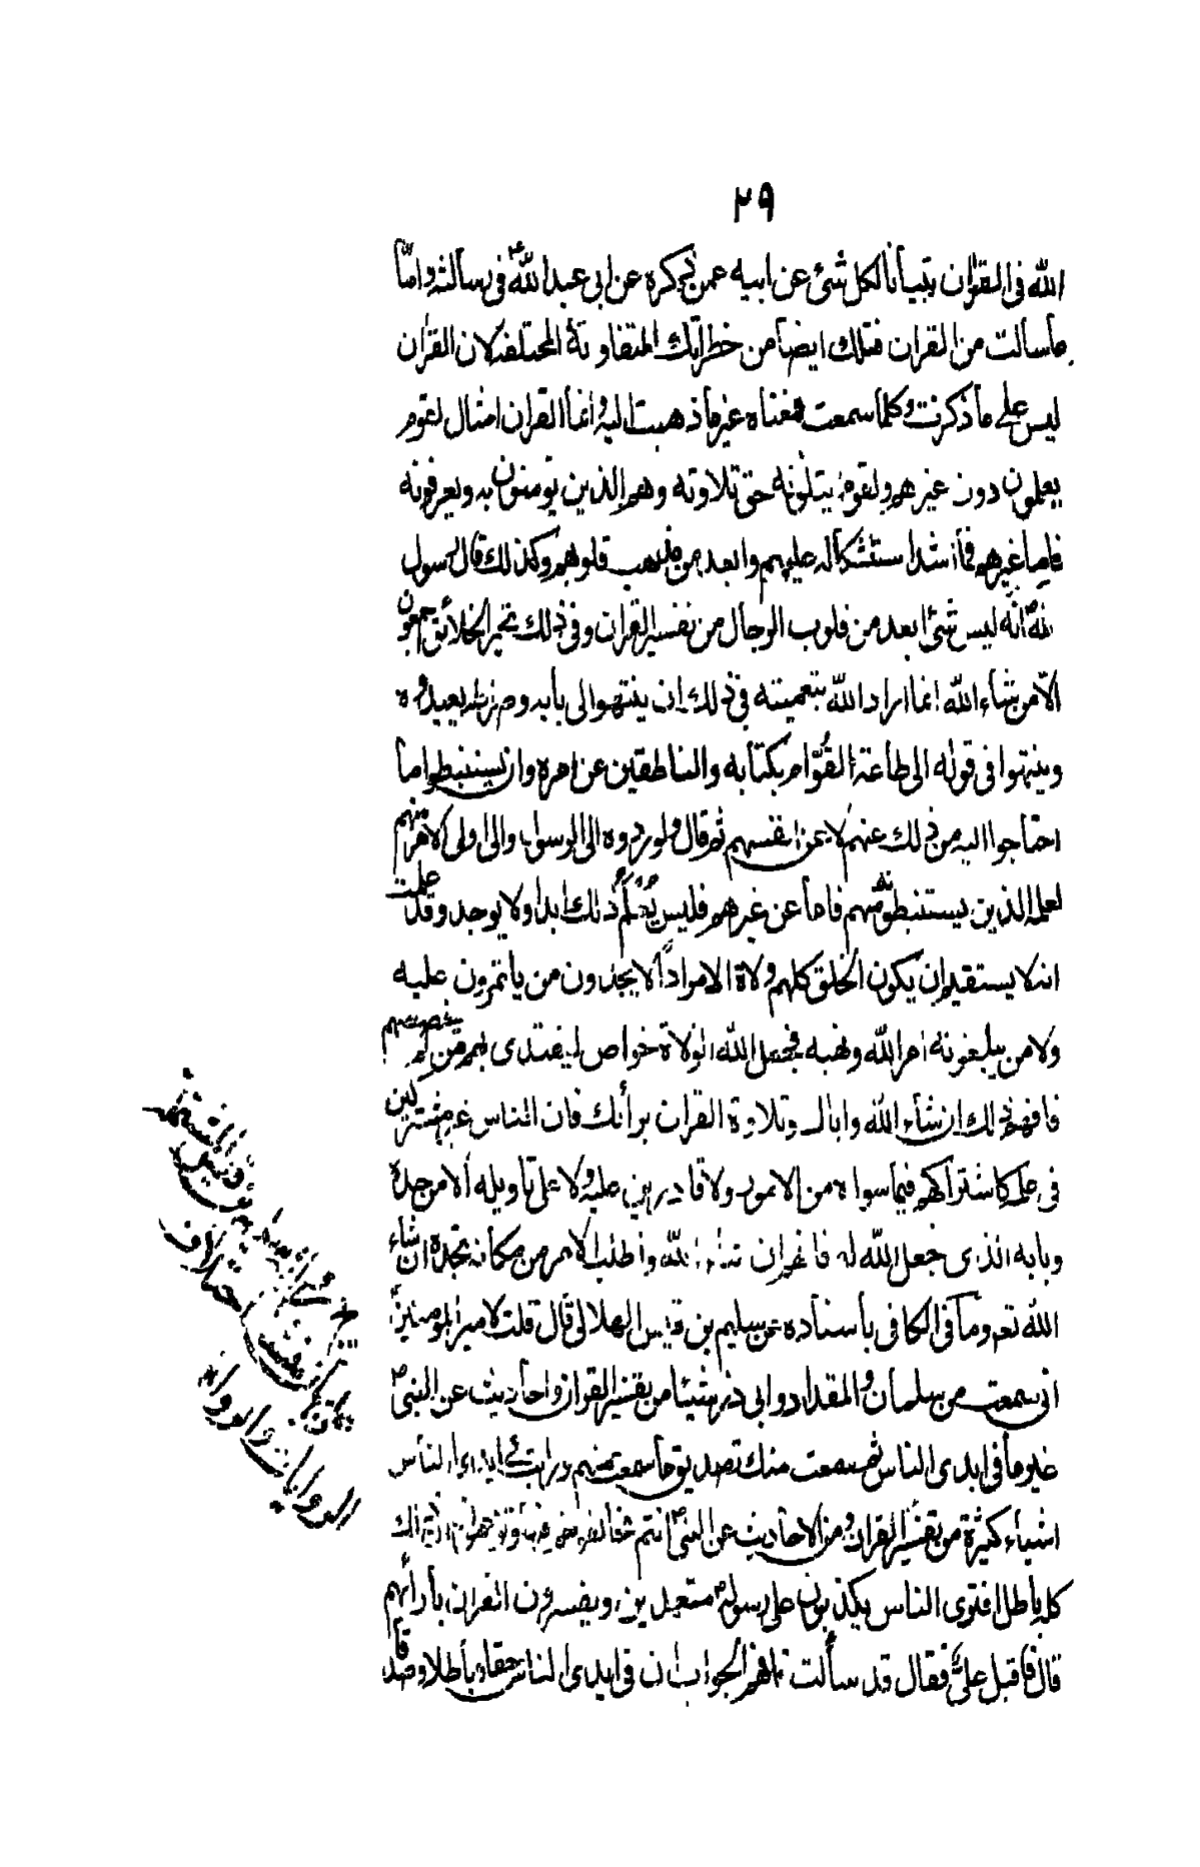 ٢٩
الله فى القران تبيانا لكل شئ عن ابيه عمن ذكره عن ابى عبد الله ع فى رسالته واما
ما سالت من القران فذلك ايضا من خطراتك المتفاوتة المختلفة لان القران
ليس على ما ذكرت وكلما سمعت فمعناه غير ما ذهبت اليه وانما القران امثال لقوم
يعلمون دون غيرهم ولقوم يتلونه حق تلاوته وهم الذين يؤمنون به ويعرفونه
فاما غيرهم فما اشد استشكاله عليهم وابعده من مذهب قلوبهم وكذلك قال رسول
الله ص انه ليس شئ ابعد من قلوب الرجال من تفسير القران وفى ذلك تحير الخلائق اجمعون
الا من شاء الله انما اراد الله بتعميته فى ذلك ان ينتهوا الى بابه وصراطه ويعبدوه
وينتهوا فى قوله الى طاعة القوام بكتابه والناطقين عن امره وان يستنبطوا ما
احتاجوا اليه من ذلك عنهم لا عن انفسهم ثم قال ولو ردوه الى الرسول والى اولى الامر منهم
لعلمه الذين يستنبطونه منهم فاما عن غيرهم فليس يعلم ذلك ابدا ولا يوجد وقد علمت
انه لا يستقيم ان يكون الخلق كلهم ولاة الامر اذا لا يجدون من ياتمرون عليه
ولا من يبلغونه امر الله ونهيه فجعل الله الولاة خواص ليقتدى بهم من لم يخصصهم
فافهم ذلك ان شاء الله واياك وتلاوة القران برأيك فان الناس غير مشتركين
فى علمه كاشتراكهم فيما سواه من الامور ولا قادرين عليه ولا على تاويله الا من حده
وبابه الذى جعل الله له فافهم ان شاء الله واطلب الامر من مكانه تجده ان شاء
الله تعالى وما فى الكافى باسناده عن سليم بن قيس الهلالى قال قلت لامير المؤمنين ع
انى سمعت من سلمان والمقداد وابى ذر شيئا من تفسير القران واحاديث عن النبى ص
غير ما فى ايدى الناس ثم سمعت منك تصديق ما سمعت منهم ورايت فى ايدى الناس
اشياء كثيرة من تفسير القران ومن الاحاديث عن النبى ص انتم تخالفونهم فيها وتزعمون ان ذلك
كله باطل افترى الناس يكذبون على رسول ص متعمدين ويفسرون القران بارائهم
قال فاقبل على فقال قد سألت فافهم الجواب ان فى ايدى الناس حقا وباطلا وصدقا
اختلاف
الروايات والرواه